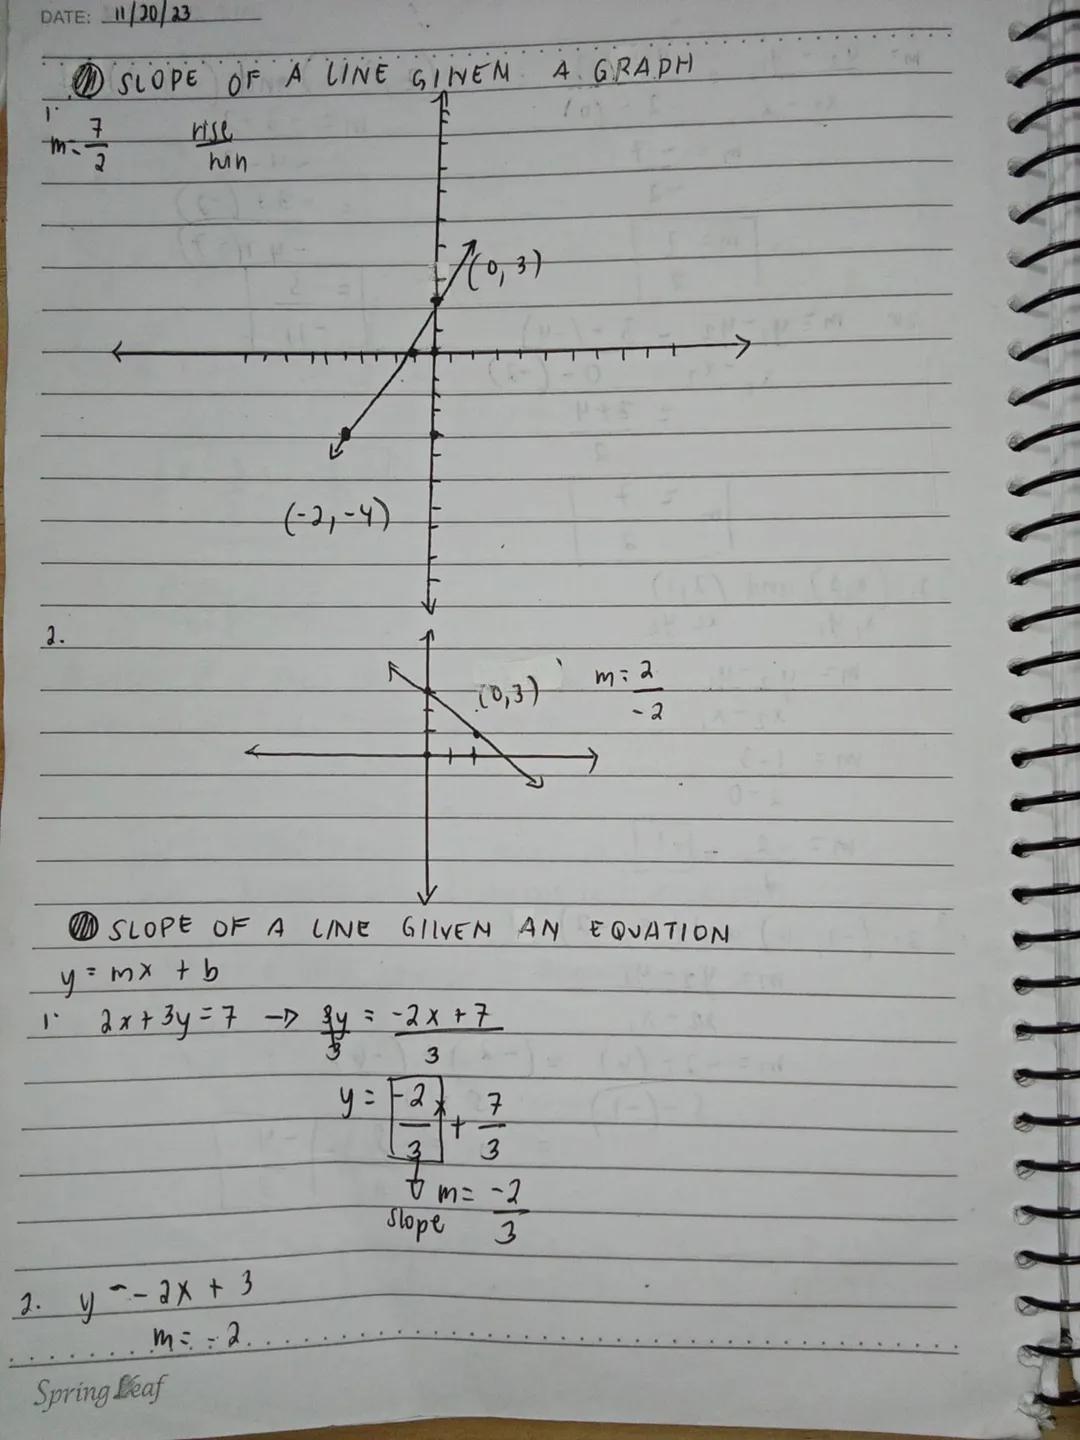 DATE: 11/20/23
SLOPE OF A LINE GIVEN A GRAPH
1.
m = 7/2 rise/run
(0, 3)
(-2, -4)
2.
(0,3) m = 2/-2
SLOPE OF A LINE GIIVEN AN EQUATION
y = mx + b
1. 2x + 3y = 7 → 3y/3 = -2x + 7/3
y = -2/3 x + 7/3
m = -2/3
slope
2. y = -2x + 3
m = -2
Spring Leaf